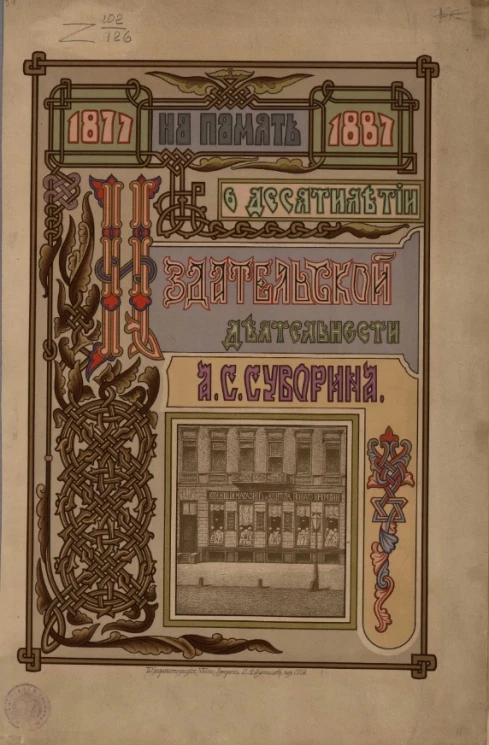 Z 102/126
1877 НА ПАМЯТЬ 1887
О ДЕСЯТИЛѢТІИ
ИЗДАТЕЛЬСКОЙ
ДѢЯТЕЛЬНОСТИ
А.С.СУВОРИНА.